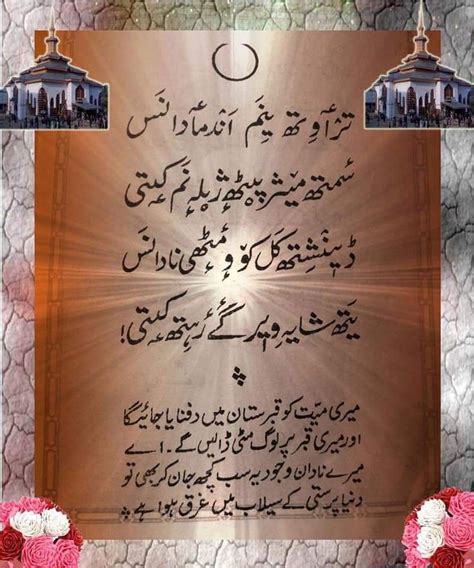 ترٛٲوِتھ یِنَم اَندٕ مٲدانَس
سٔمِتھ میٚژ پؠٹھ ژٕلہٕ نَم کیٖتی
ڈیٖنٛشِتھ کَل کوٚو مٔٹھی نادانَس
یَتھ شایہِ وٕپر گے رٔہِتھ کیٖتی!
میری میّت کو قبرستان میں دفنایا جائیگا
اور میری قبر پر لوگ مٹی ڈالیں گے ۔ اے
میرے نادان وجود یہ سب کچھ جان کر بھی تو
دنیا پرستی کے سیلاب میں غرق ہوا ہے